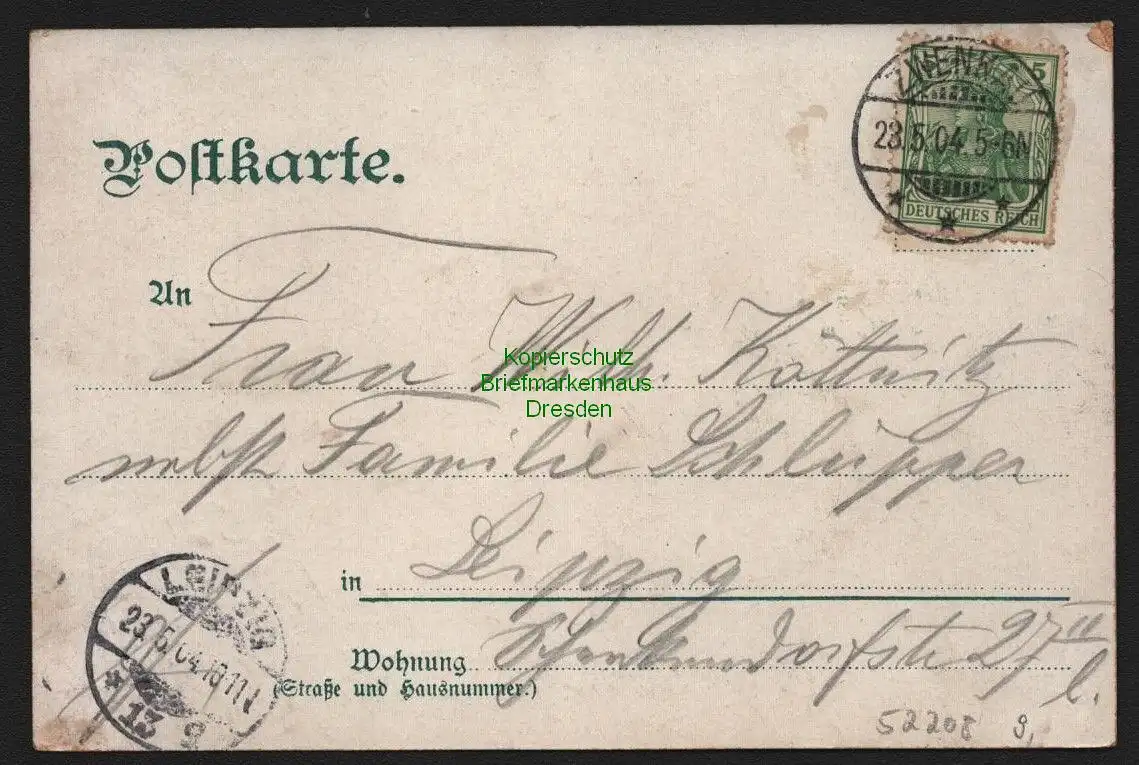 Postkarte.
ZWENKAU
23.5.04.5-6N
5
DEUTSCHES REICH
An
Frau Wilh. Köttnitz
nebst Familie Schlüpper
in Leipzig
Wohnung Schenkendorfstr 27 II
(Straße und Hausnummer.) l.
LEIPZIG
23.5.04.10-11N
13
Kopierschutz
Briefmarkenhaus
Dresden
52208 9,